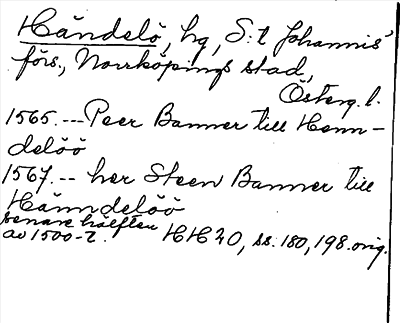 Händelö, hg, S:t Johannis'
förs., Norrköpings stad,
Österg. l.
1565.--- Peer Banner till Henn-
delöö
1567.-- her Steen Banner till
Hänndelöö
senare hälften
av 1500-t. HH 20, ss. 180, 198. orig.